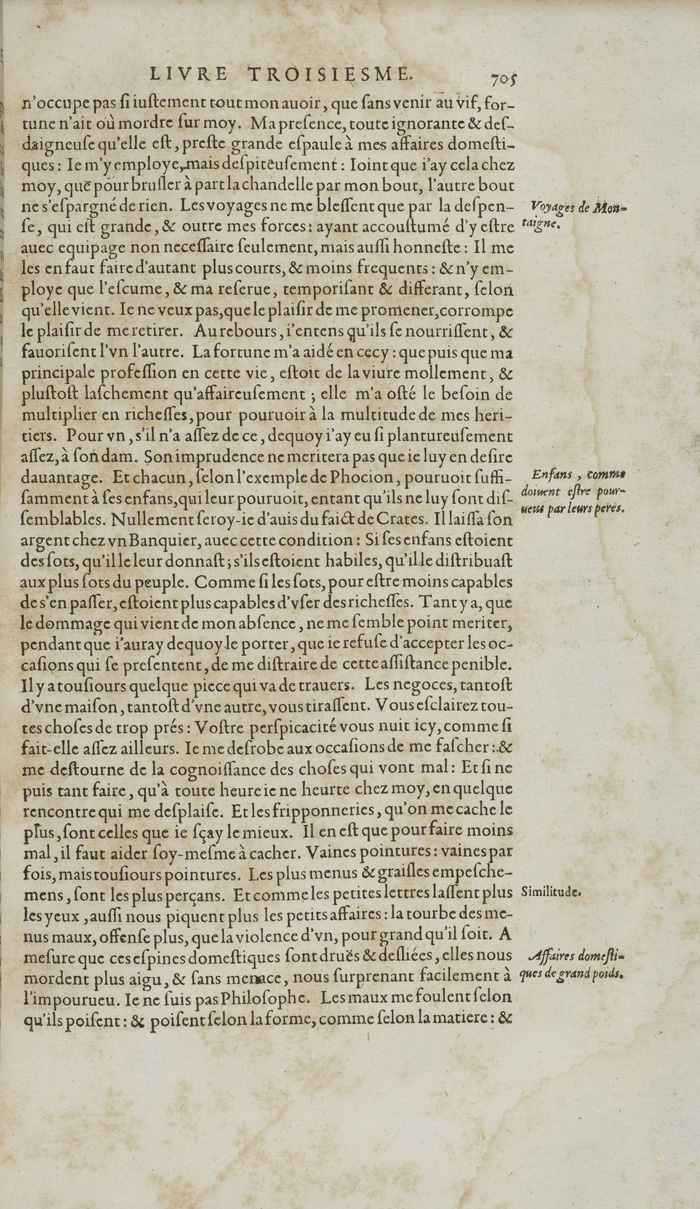 LIVRE TROISIESME. 705
n'occupe pas ſi iuſtement tout mon auoir, que ſans venir au vif, for-
tune n'ait où mordre ſur moy. Ma preſence, toute ignorante & deſ-
daigneuſe qu'elle eſt, preſte grande eſpaule à mes affaires domeſti-
ques: Ie m'y employe, mais deſpiteuſement: Ioint que i'ay cela chez
moy, que pour bruſler à part la chandelle par mon bout, l'autre bout
ne s'eſpargne de rien. Les voyages ne me bleſſent que par la deſpen-
ſe, qui eſt grande, & outre mes forces: ayant accouſtumé d'y eſtre
auec equipage non neceſſaire ſeulement, mais auſſi honneſte: Il me
les en faut faire d'autant plus courts, & moins frequents: & n'y em-
ploye que l'eſcume, & ma reſerue, temporiſant & differant, ſelon
qu'elle vient. Ie ne veux pas, que le plaiſir de me promener, corrompe
le plaiſir de me retirer. Au rebours, i'entens qu'ils ſe nourriſſent, &
fauoriſent l'vn l'autre. La fortune m'a aidé en cecy: que puis que ma
principale profeſſion en cette vie, eſtoit de la viure mollement, &
pluſtoſt laſchement qu'affaireuſement; elle m'a oſté le beſoin de
multiplier en richeſſes, pour pouruoir à la multitude de mes heri-
tiers. Pour vn, s'il n'a aſſez de ce, dequoy i'ay eu ſi plantureuſement
aſſez, à ſon dam. Son imprudence ne meritera pas que ie luy en deſire
dauantage. Et chacun, ſelon l'exemple de Phocion, pouruoit ſuffi-
ſamment à ſes enfans, qui leur pouruoit, entant qu'ils ne luy ſont diſ-
ſemblables. Nullement ſeroy-ie d'auis du faict de Crates. Il laiſſa ſon
argent chez vn Banquier, auec cette condition: Si ſes enfans eſtoient
des ſots, qu'il le leur donnaſt; s'ils eſtoient habiles, qu'il le diſtribuaſt
aux plus ſots du peuple. Comme ſi les ſots, pour eſtre moins capables
de s'en paſſer, eſtoient plus capables d'vſer des richeſſes. Tant y a, que
le dommage qui vient de mon abſence, ne me ſemble point meriter,
pendant que i'auray dequoy le porter, que ie refuſe d'accepter les oc-
caſions qui ſe preſentent, de me diſtraire de cette aſſiſtance penible.
Il y a touſiours quelque piece qui va de trauers. Les negoces, tantoſt
d'vne maiſon, tantoſt d'vne autre, vous tiraſſent. Vous eſclairez tou-
tes choſes de trop prés: Voſtre perſpicacité vous nuit icy, comme ſi
fait-elle aſſez ailleurs. Ie me deſrobe aux occaſions de me faſcher: &
me deſtourne de la cognoiſſance des choſes qui vont mal: Et ſi ne
puis tant faire, qu'à toute heure ie ne heurte chez moy, en quelque
rencontre qui me deſplaiſe. Et les fripponneries, qu'on me cache le
plus, ſont celles que ie ſçay le mieux. Il en eſt que pour faire moins
mal, il faut aider ſoy-meſme à cacher. Vaines pointures: vaines par
fois, mais touſiours pointures. Les plus menus & graiſles empeſche-
mens, ſont les plus perçans. Et comme les petites lettres laſſent plus
les yeux, auſſi nous piquent plus les petits affaires: la tourbe des me-
nus maux, offenſe plus, que la violence d'vn, pour grand qu'il ſoit. A
meſure que ces eſpines domeſtiques ſont druës & deſliées, elles nous
mordent plus aigu, & ſans menace, nous ſurprenant facilement à
l'impourueu. Ie ne ſuis pas Philoſophe. Les maux me foulent ſelon
qu'ils poiſent: & poiſent ſelon la forme, comme ſelon la matiere: &
Voyages de Mon-
taigne.
Enfans, comme
doiuent eſtre pour-
ueus par leurs peres.
Similitude.
Affaires domeſti-
ques de grand poids.